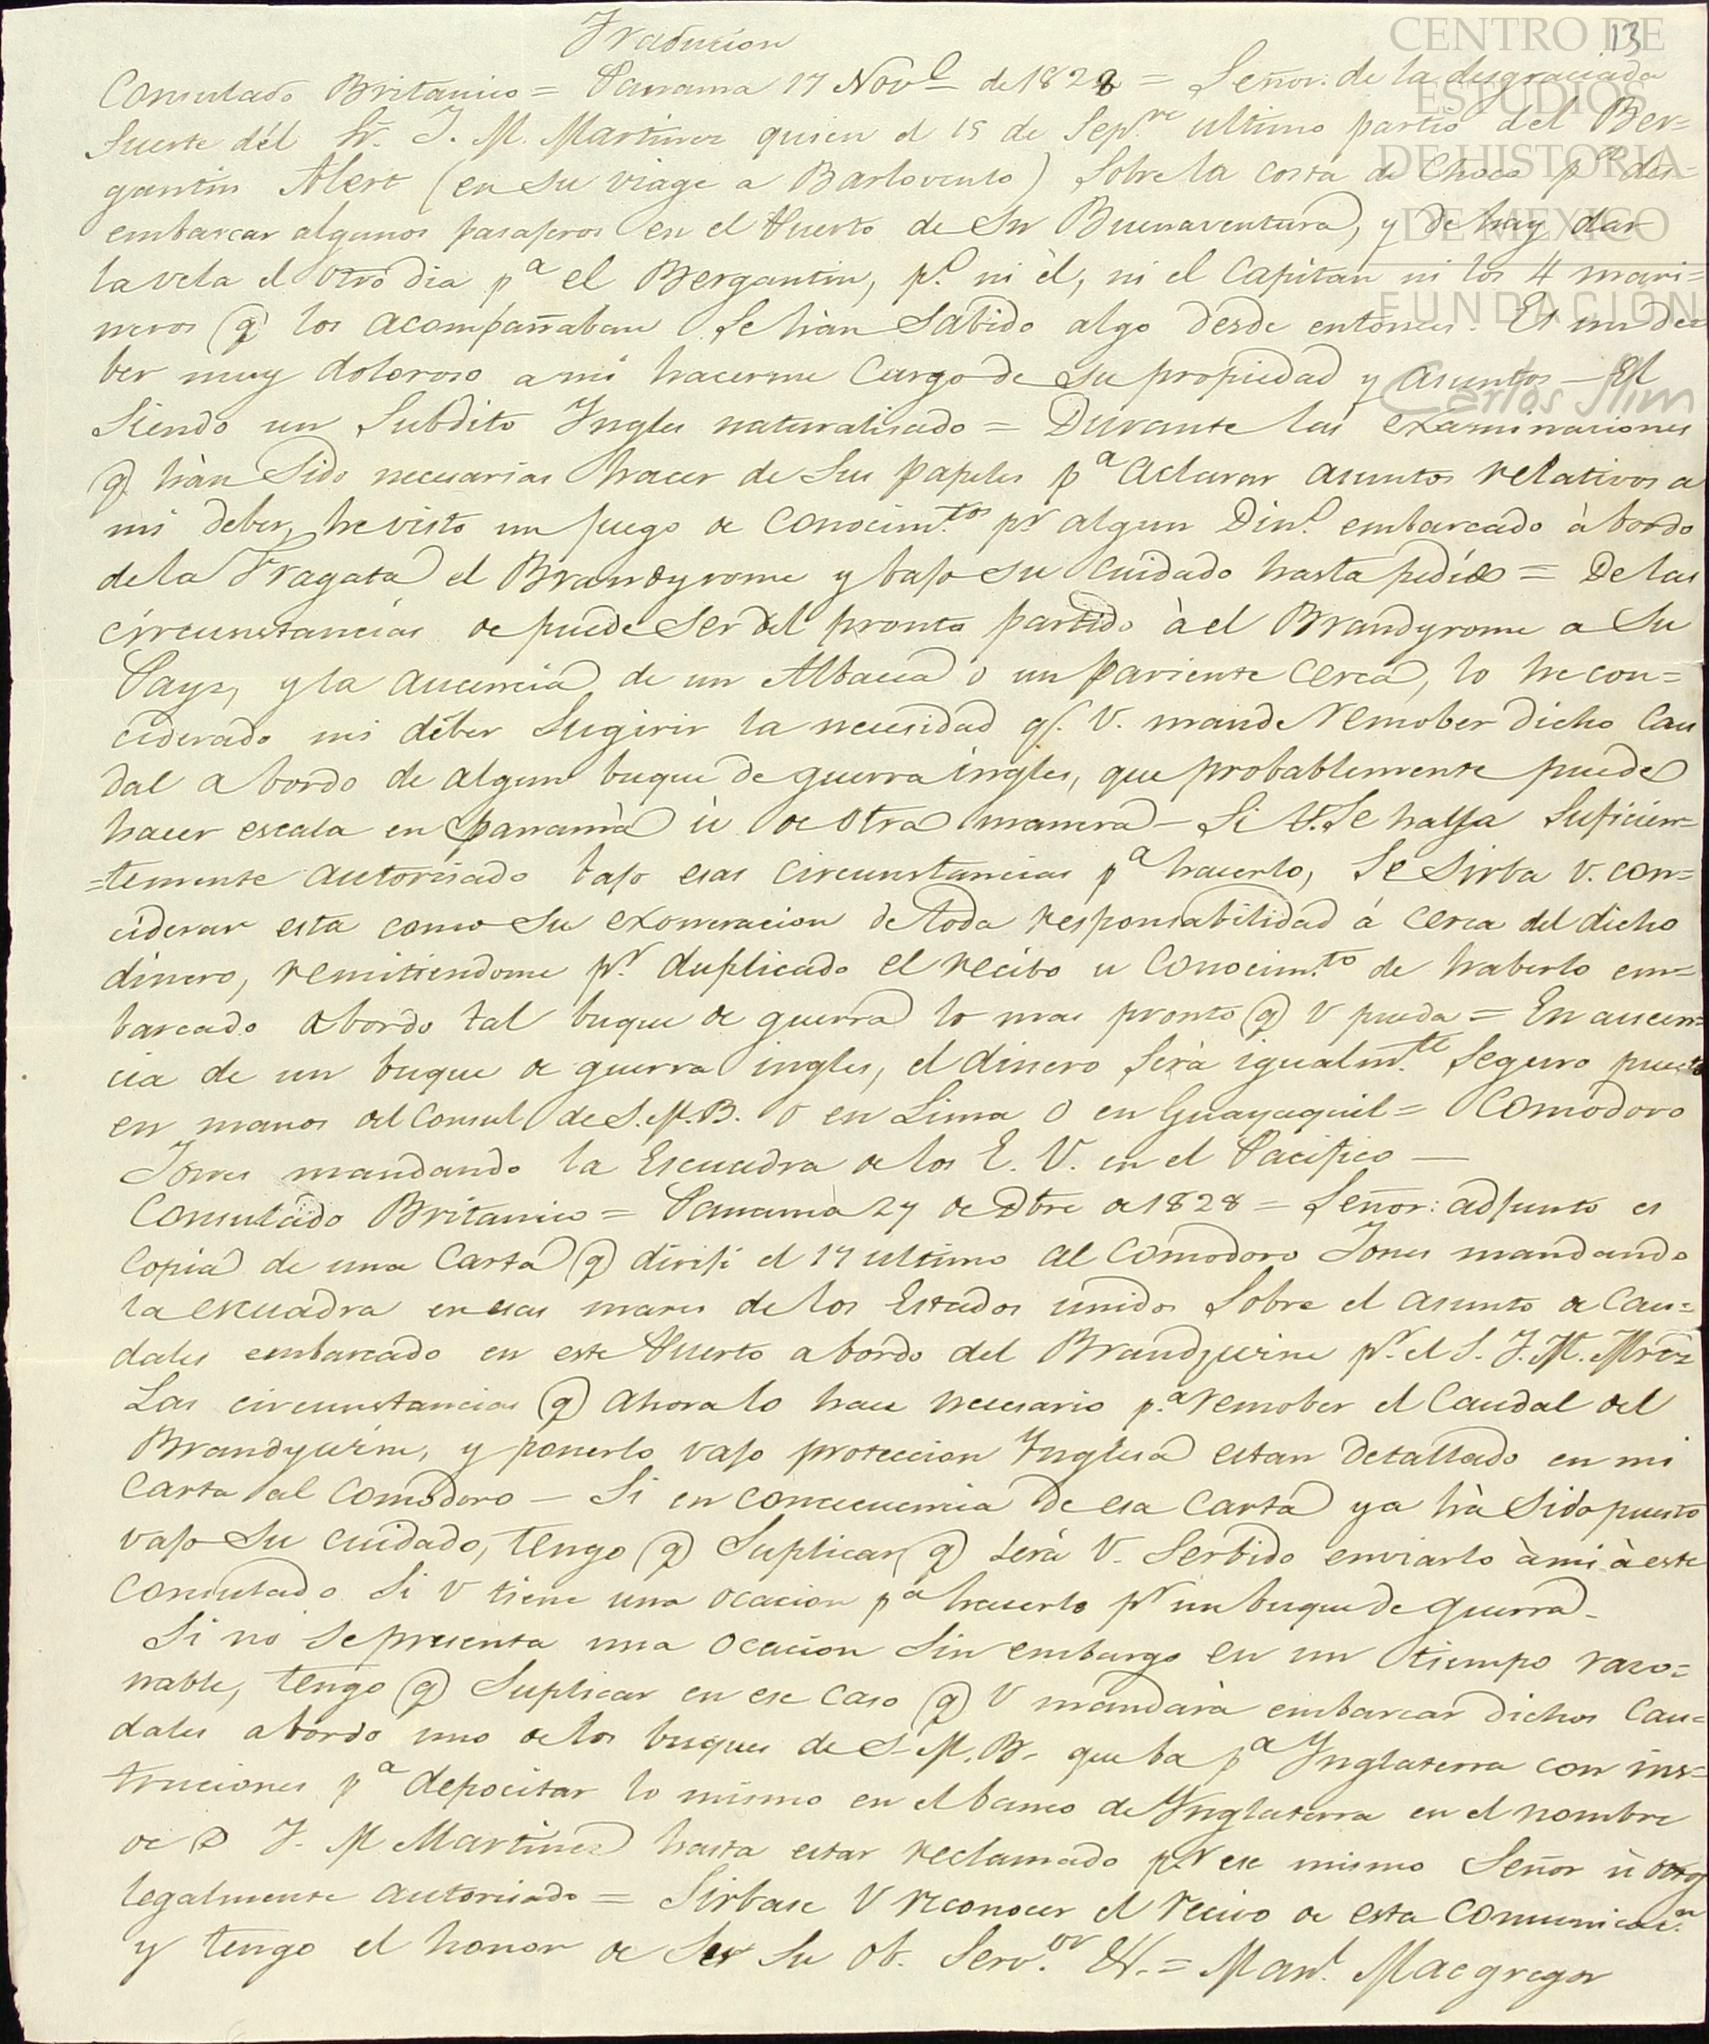 13
CENTRO DE
ESTUDIOS
DE HISTORIA
DE MEXICO
FUNDACION
Carlos Slim
Traducion
Consulado Britanico = Panama 17 Novᵉ de 1828 = Señor: de la desgraciada
suerte dél Sr. J. M. Martinez quien el 15 de Sepᵗʳᵉ ultimo partio del Ber=
gantin Alert (en su viage a Barlovento) sobre la costa de Choco pᵃ des=
embarcar algunos pasajeros en el Puerto de Sn Buenaventura, y de hay dar
la vela el otro dia pᵃ el Bergantin, pᵒ. ni él, ni el Capitan ni los 4 mari=
neros q los acompañaban se hàn sabido algo desde entonces. Es un de=
ber muy doloroso a mi hacerme Cargo de su propiedad y asuntos — El
siendo un Subdito Ingles naturalisado = Durante las examinaciones
q hàn sido necesarias hacer de sus papeles pᵃ aclarar asuntos relativos a
mi deber, he visto un juego de conocimᵗᵒˢ pʳ algun Dinᵒ embarcado à bordo
de la Fragata el Brandyrome y bajo su cuidado hasta pedído = De las
círcunstancias de puede ser del pronto partido à el Brandyrome a su
Pays, y la aucencia de un Albacea o un pariente cerca, lo he con=
ciderado mi déber sugirir la necesidad q. V. mande remober dicho Cau
dal a bordo de algun buque de guerra ingles, que probablemente puede
hacer escala en panamà ù de otra manera — Si V. se halla suficien=
=temente autorisado bajo esas circunstancias pᵃ hacerlo, se sirba v. con=
ciderar esta como su exoneracion de toda responsabilidad á cerca del dicho
dinero, remitiendome pʳ duplicado el recibo u conocimᵗᵒ de haberlo em=
barcado abordo tal buque de guerra lo mas pronto q V pueda = En aucen=
cia de un buque de guerra ingles, el dinero será igualmᵗᵉ seguro puesto
en manos del Consul de S.M.B. o en Lima o en Guayaquil = Comodoro
Jones mandando la Escuadra de los E. V. en el Pacifico —
Consulado Britanico = Panama 27 de Dbre de 1828 = Señor: adjunto es
Copia de una Carta q diriji el 17 ultimo al Comodoro Jones mandando
la escuadra en esas mares de los Estados unidos sobre el asunto de Cau=
dales embarcado en este Puerto abordo del Brandywine pʳ el S. J. M. Mrõz
Las circunstancias q ahora lo hace necesario pᵃ remober el Caudal del
Brandywine, y ponerlo vajo proteccion Inglesa estan detallado en mi
Carta al Comodoro — Si en concecuencia de esa Carta ya hà sido puesto
vajo su cuidado, tengo q suplicar q será V. serbido enviarlo à mi à este
Consulado si v tiene una ocacion pᵃ hacerlo pʳ un buque de guerra.
Si no se presenta una ocacion sin embargo en un tiempo razo=
nable, tengo q suplicar en ese caso q V mandará embarcar dichos Cau=
dales abordo uno de los buques de S.M.B. que ba pᵃ Inglaterra con ins=
truciones pᵃ depocitar lo mismo en el banco de Inglaterra en el nombre
de D J. M Martinez hasta estar reclamado pʳ ese mismo Señor ù otro
legalmente autorisado = Sirbase V reconocer el recivo de esta comunicacⁿ
y tengo el honor de ser su ob. Servᵒʳ &. = Manˡ. Macgregor